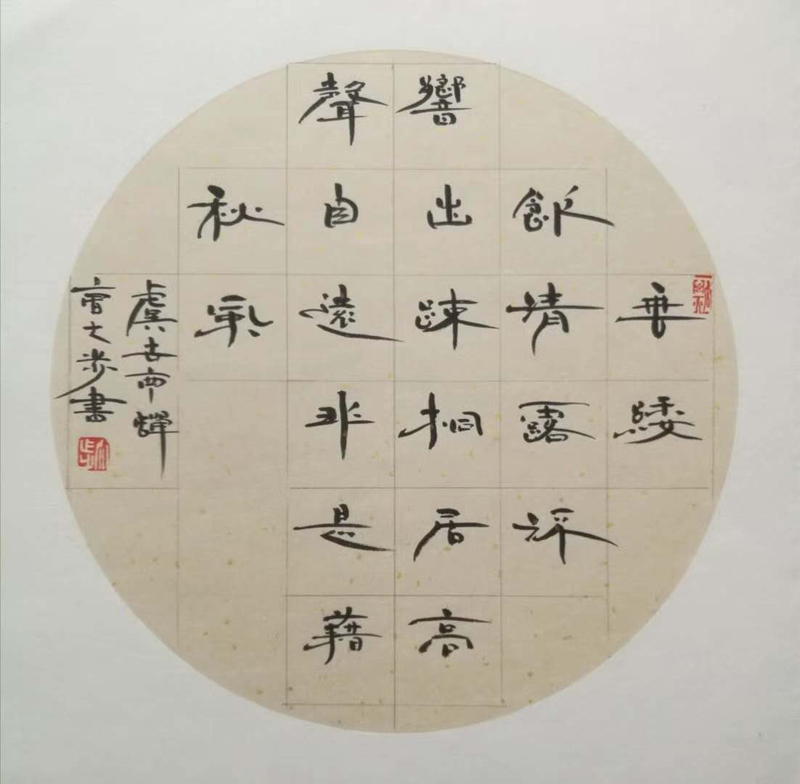 垂緌
飲清露流
響出踈桐居高
聲自遠非是藉
秋風
虞世南蟬
大步書
大步